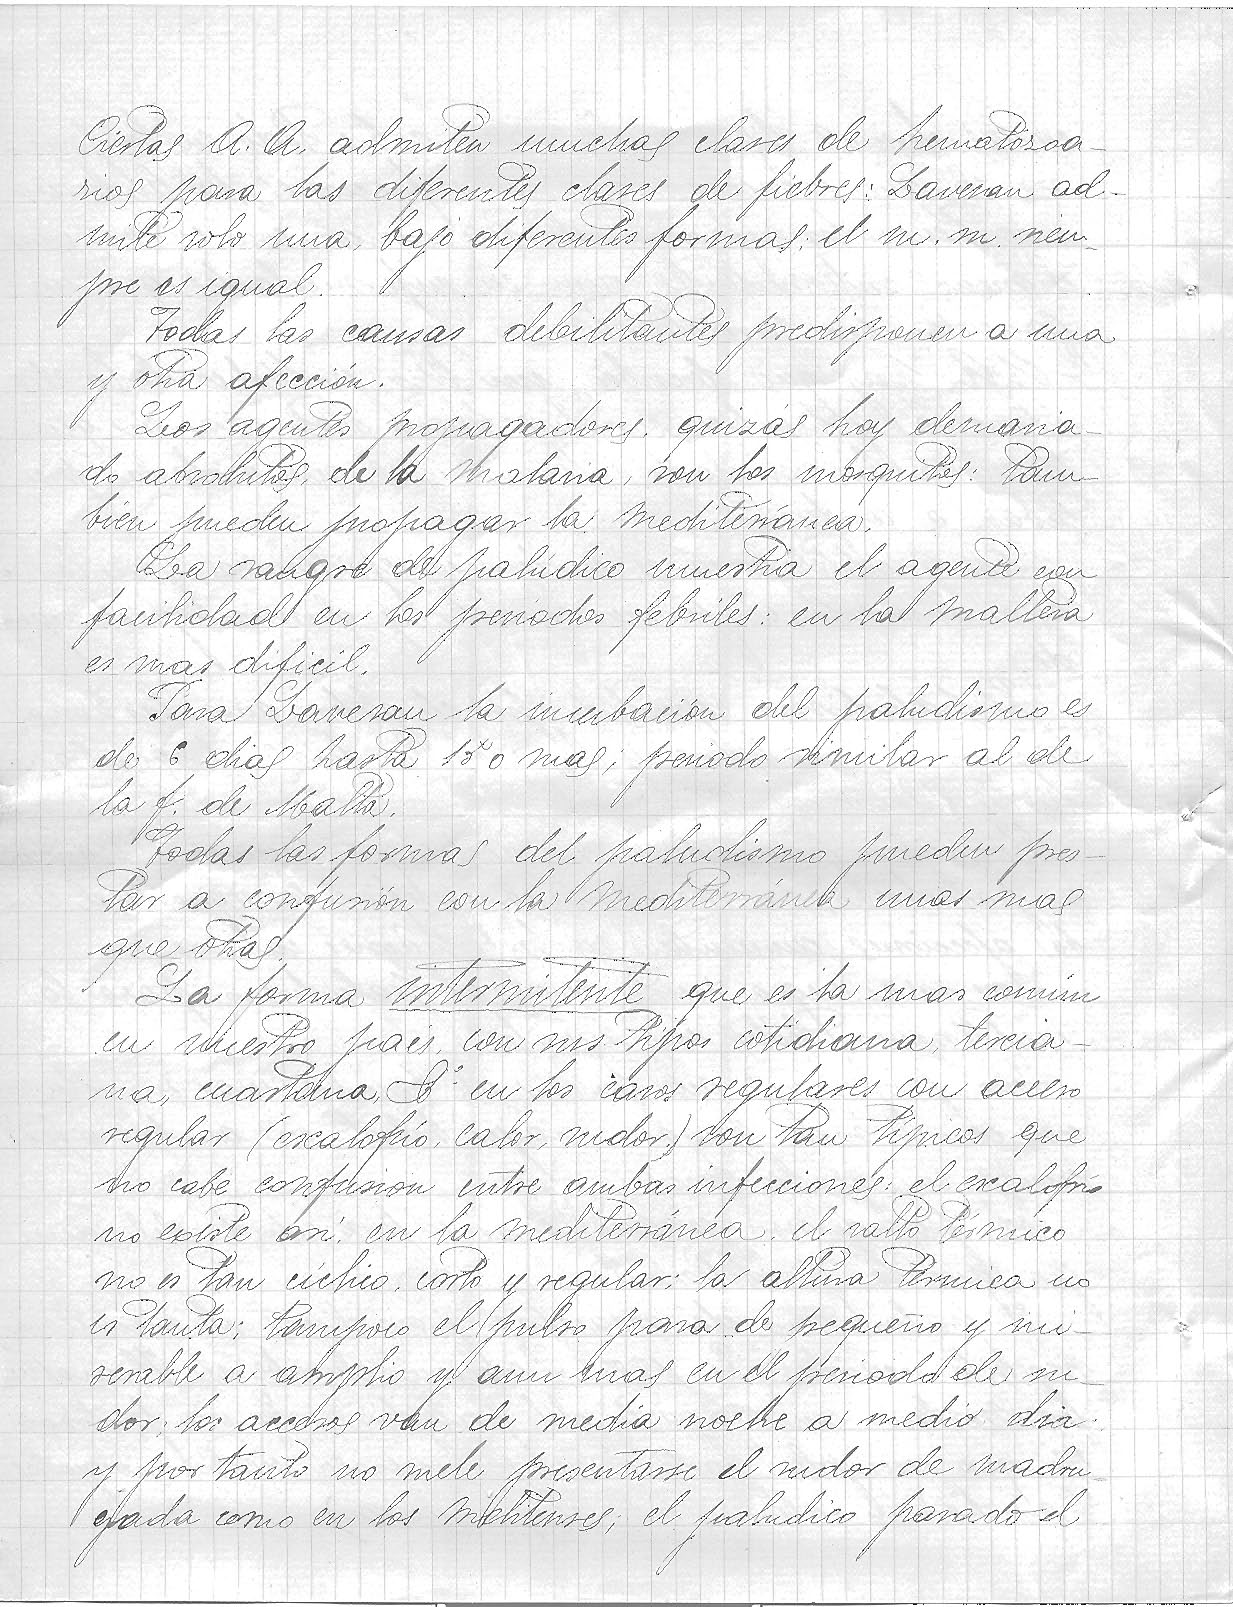 Ciertas A. A. admiten muchas clases de hematozoa-
rios para las diferentes clases de fiebres: Laveran ad-
mite solo una, bajo diferentes formas; el m. m. siem-
pre es igual.
Todas las causas debilitantes predisponen a una
y otra afección.
Los agentes propagadores, quizás hoy demasia-
do absolutos, de la malaria, son los mosquitos: tam-
bien pueden propagar la mediterránea.
La sangre de palúdico muestra el agente con
facilidad en los periodos febriles: en la maltesa
es mas dificil.
Para Laveran la incubación del paludismo es
de 6 dias hasta 15 o mas; periodo similar al de
la f. de Malta.
Todas las formas del paludismo pueden pres-
tar a confusión con la mediterránea unas mas
que otras.
La forma intermitente que es la mas común
en nuestro pais, con sus tipos cotidiana, tercia-
na, cuartana, &ª en los casos regulares con acceso
regular (escalofrio, calor, sudor,) son tan tipicos que
no cabe confusion entre ambas infecciones: el escalofrio
no existe asi, en la mediterránea, el salto térmico
no es tan cíclico, corto y regular; la altura térmica no
es tanta; tampoco el pulso pasa de pequeño y mi-
serable a amplio y aun mas en el periodo de su-
dor; los accesos van de media noche a medio dia
y por tanto no suele presentarse el sudor de madru-
gada como en los melitenses; el paludico pasado el